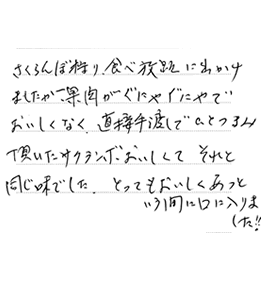 さくらんぼ狩り、食べ放題に出かけ
ましたが、果肉がぐにゃぐにゃで
おいしくなく、直接手渡しで
頂いたサクランボおいしくて それと
同じ味でした、とってもおいしくあっと
いう間に口に入りま
した!!